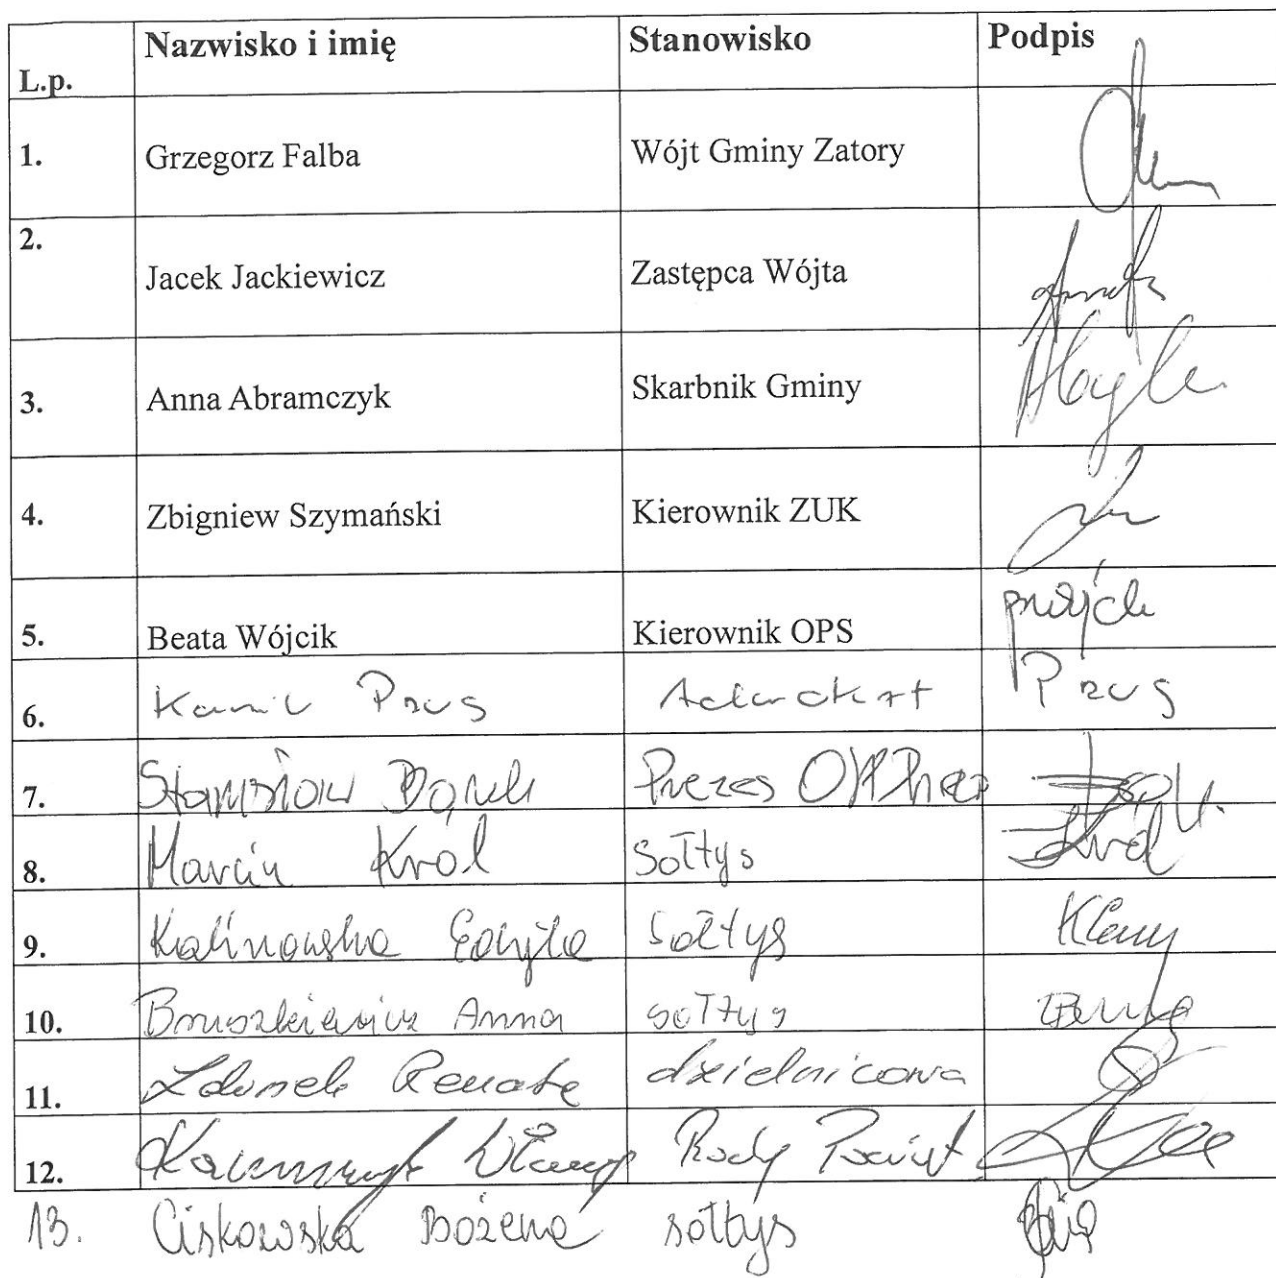 L.p. Nazwisko i imię Stanowisko Podpis
1. Grzegorz Falba Wójt Gminy Zatory
2. Jacek Jackiewicz Zastępca Wójta
3. Anna Abramczyk Skarbnik Gminy
4. Zbigniew Szymański Kierownik ZUK
5. Beata Wójcik Kierownik OPS
6. Kamil Prus Adwokat Prus
7. Stanisław Prezes
8. Marcin Król sołtys Król
9. Kalinowska Edyta sołtys
10. Bruszkiewicz Anna sołtys
11. Zdunek Renata dzielnicowa
12. Rady Powiat
13. Ciskowska Bożena sołtys